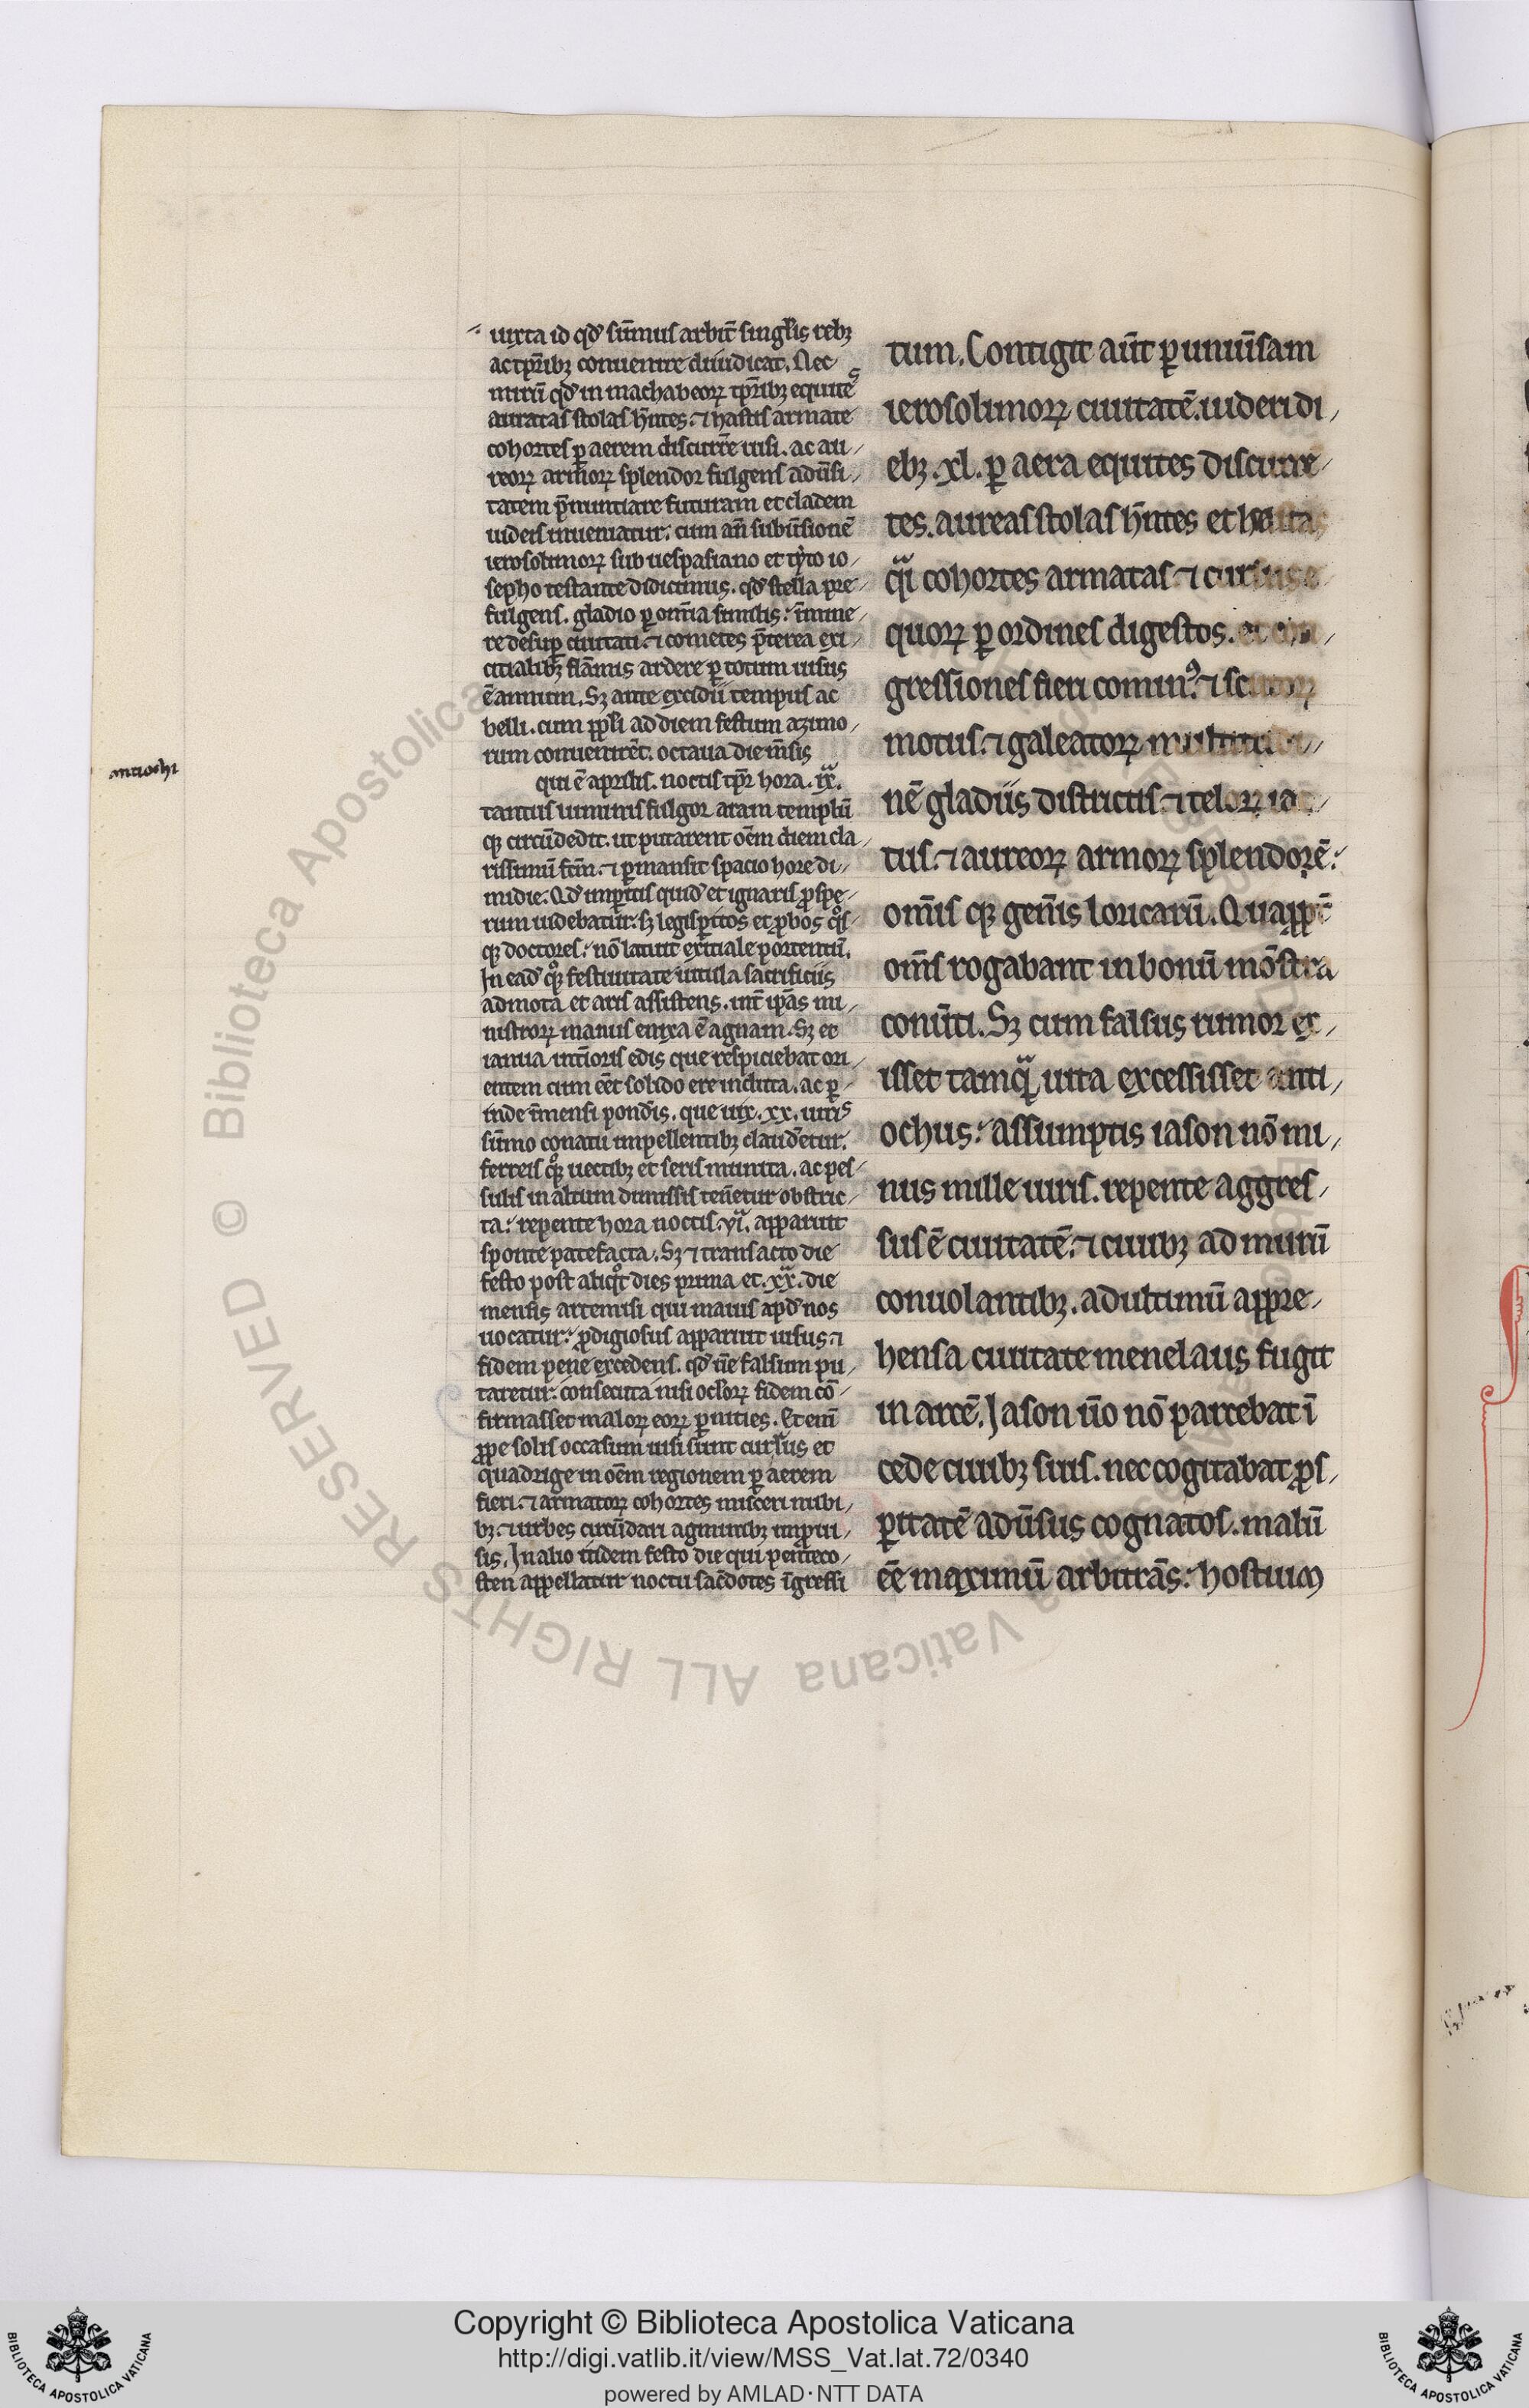 iuxta id qd̓ sūmus arbit̄ singl̓is rebꝫ
ac tp̄ribꝫ conuenire diiudicat. Nec
mirū qd̓ in machabeoꝝ tp̄ribꝫ equites
auratas stolas hn̄tes. ⁊ hastis armate
cohortes ꝑ aerem discurre᷑ uisi. ac au
reoꝝ armoꝝ splendor fulgens adūsi
tatem p̄nuntiare futuram et cladem
iudeis inueniatur. cum an̄ subūsionē
ierosolimoꝝ sub uespasiano et tyto io
sepho testante didicimus. qd̓ stella pre
fulgens. gladio ꝑ omīa similis. īmine
re desuꝑ ciuitati. ⁊ cometes p̄terea exi
cialibꝫ flāmis ardere ꝑ totum uisus
ē annum. Sꝫ ante excidii tempus ac
belli. cum ppl̓i ad diem festum azimo
rum conuenirēt. octaua die m̄sis
qui ē aprilis. noctis tp̄r hora. ixͣ.
tantus luminis fulgor aram templū
qꝫ circūdedit. ut putarent oēm diem cla
rissimū fc̄m. ⁊ ꝑmansit spacio hore di
midie. Qd̓ imꝑitis quid̓ et ignaris ꝓspe
rum uidebatur. sꝫ legisꝑitos et ꝓbos qͦs
qꝫ doctores. nō latuit exitiale portentū.
In ead̓ qͦꝫ festiuitate uitula sacrificiis
admota et aris assistens. int̄ ip̄as mi
nistroꝝ manus enixa ē agnam. Sꝫ et
ianua int̄ioris edis que respiciebat ori
entem cum eēt solido ere inclita. ac ꝑ
inde īmensi pond̓is. que uix. xx. uiris
sūmo conatu impellentibꝫ claud̓etur.
ferreis qͦꝫ uectibꝫ et seris munita. ac pes
sulis in altum dimissis ten̄etur obstric
ta. repente hora noctis. viͣ. apparuit
sponte patefacta. Sꝫ ⁊ transacto die
festo post aliqͦt dies prima et. xxͣ. die
mensis artemisi qui maius apd̓ nos
uocatur. ꝓdigiosus apparuit uisus ⁊
fidem pene excedens. qd̓ ūe falsum pu
taretur. consecuta nisi ocl̓oꝝ fidem cō
firmasset maloꝝ eoꝝ ꝑnities. Et enī
ꝓpe solis occasum uisi sunt currus et
quadrige in oēm regionem ꝑ aerem
fieri. ⁊ armatoꝝ cohortes misceri nubi
bꝫ. ⁊ urbes circūdari agminibꝫ imꝓui
sis. In alio itidem festo die qui penteco
sten appellatur noctu sac̄dotes īgressi
antiochi
tum. Contigit aūt ꝑ uniūsam
ierosolimoꝝ ciuitatē. uideri di
ebꝫ. xl. ꝑ aera equites discurre
tes. aureas stolas hn̄tes et hastas
qͣi cohortes armatas ⁊ cursus e
quoꝝ ꝑ ordines digestos. et con
gressiones fieri comin᷒. ⁊ scutoꝝ
motus. ⁊ galeatoꝝ multitudi
nē gladiis districtis. ⁊ teloꝝ iac
tus. ⁊ aureoꝝ armoꝝ splendorē.
omīs qꝫ gen̄is loricarū. Quapp̄
om̄s rogabant in bonū mōstra
conūti. Sꝫ cum falsus rumor ex
isset tamqͣ uita excessisset anti
ochus. assumptis iason nō mi
nus mille uiris. repente aggres
sus ē ciuitatē. ⁊ ciuibꝫ ad murū
conuolantibꝫ. ad ultimū appre
hensa ciuitate menelaus fugit
in arcē. Iason ūo nō parcebat ī
cede ciuibꝫ suis. nec cogitabat ꝓs
ꝑitatē adūsus cognatos. malū
eē maximū arbitrās. hostium
Copyright © Biblioteca Apostolica Vaticana
http://digi.vatlib.it/view/MSS_Vat.lat.72/0340
powered by AMLAD·NTT DATA
BIBLIOTECA APOSTOLICA VATICANA
BIBLIOTECA APOSTOLICA VATICANA
© Biblioteca Apostolica Vaticana ALL RIGHTS RESERVED